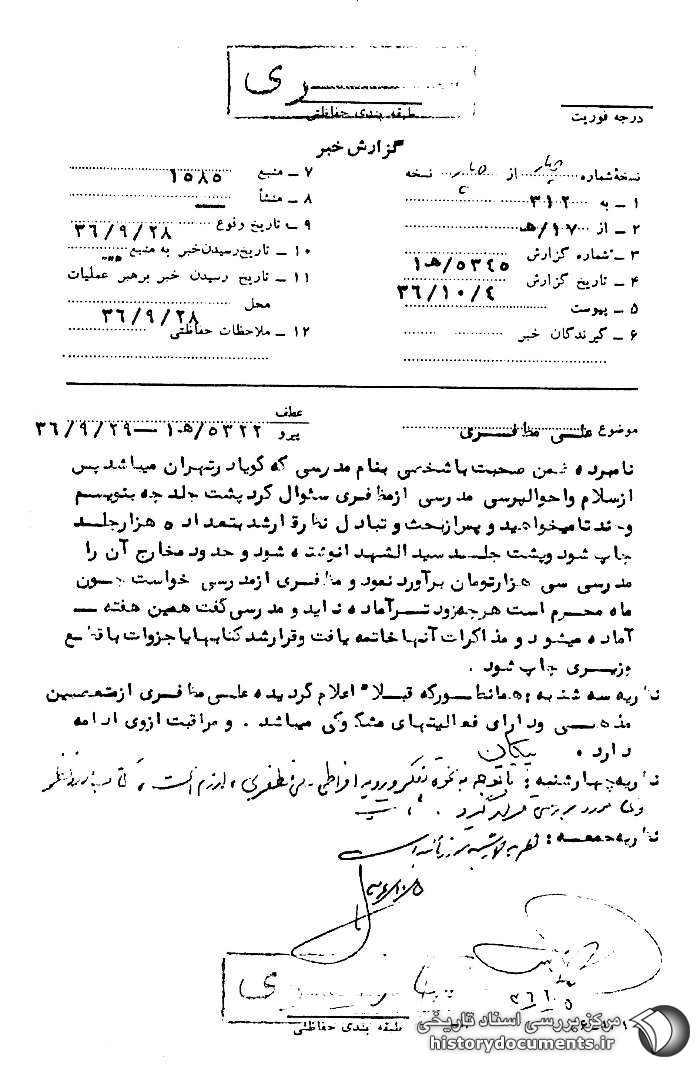 سری
طبقه بندی حفاظتی
درجه فوریت
گزارش خبر
نسخهٔ شماره از نسخه
۱ ـ به ۳۱۲
۲ ـ از ۱۷/هـ
۳ ـ شماره گزارش ۱هـ/۵۳۴۵
۴ ـ تاریخ گزارش ۳۶/۱۰/۴
۵ ـ پیوست
۶ ـ گیرندگان خبر
۷ ـ منبع ۱۵۸۵
۸ ـ منشأ
۹ ـ تاریخ وقوع ۳۶/۹/۲۸
۱۰ ـ تاریخ رسیدن خبر به منبع
۱۱ ـ تاریخ رسیدن خبر برهبر عملیات
محل ۳۶/۹/۲۸
۱۲ ـ ملاحظات حفاظتی
موضوع علی مظفری
عطف
پیرو ۱هـ/۵۳۲۲ ـ ۳۶/۹/۲۹
نامبرده ضمن صحبت با شخصی بنام مدرسی که گویا در تهران میباشد پس
از سلام و احوالپرسی مدرسی از مظفری سئوال کرد پشت جلد چه بنویسم
و چند تا میخواهید و پس از بحث و تبادل نظر قرار شد بتعداد ۵ هزار جلد
چاپ شود و پشت جلد سید الشهدا نوشته شود و حدود مخارج آن را
مدرسی سی هزار تومان برآورد نمود و مظفری از مدرسی خواست چون
ماه محرم است هر چه زودتر آماده نماید و مدرسی گفت همین هفته ـ
آماده میشود و مذاکرات آنها خاتمه یافت و قرار شد کتابها یا جزوات با قطع
وزیری چاپ شود .
نظریه سه شنبه : همانطور که قبلا" اعلام گردیده علی مظفری از متعصبین
مذهبی و دارای فعالیتهای مشکوکی میباشد . و مراقبت از وی ادامه
دارد . پیکان
نظریه چهارشنبه : با توجه به نحوه تفکر و رویه افراطی علی مظفری ، لازم است ، کتاب
مورد بررسی قرار گیرد .
نظریه جمعه : نظریه چهارشنبه مورد تأیید است
سری
طبقه بندی حفاظتی
مرکز بررسی اسناد تاریخی
historydocuments.ir